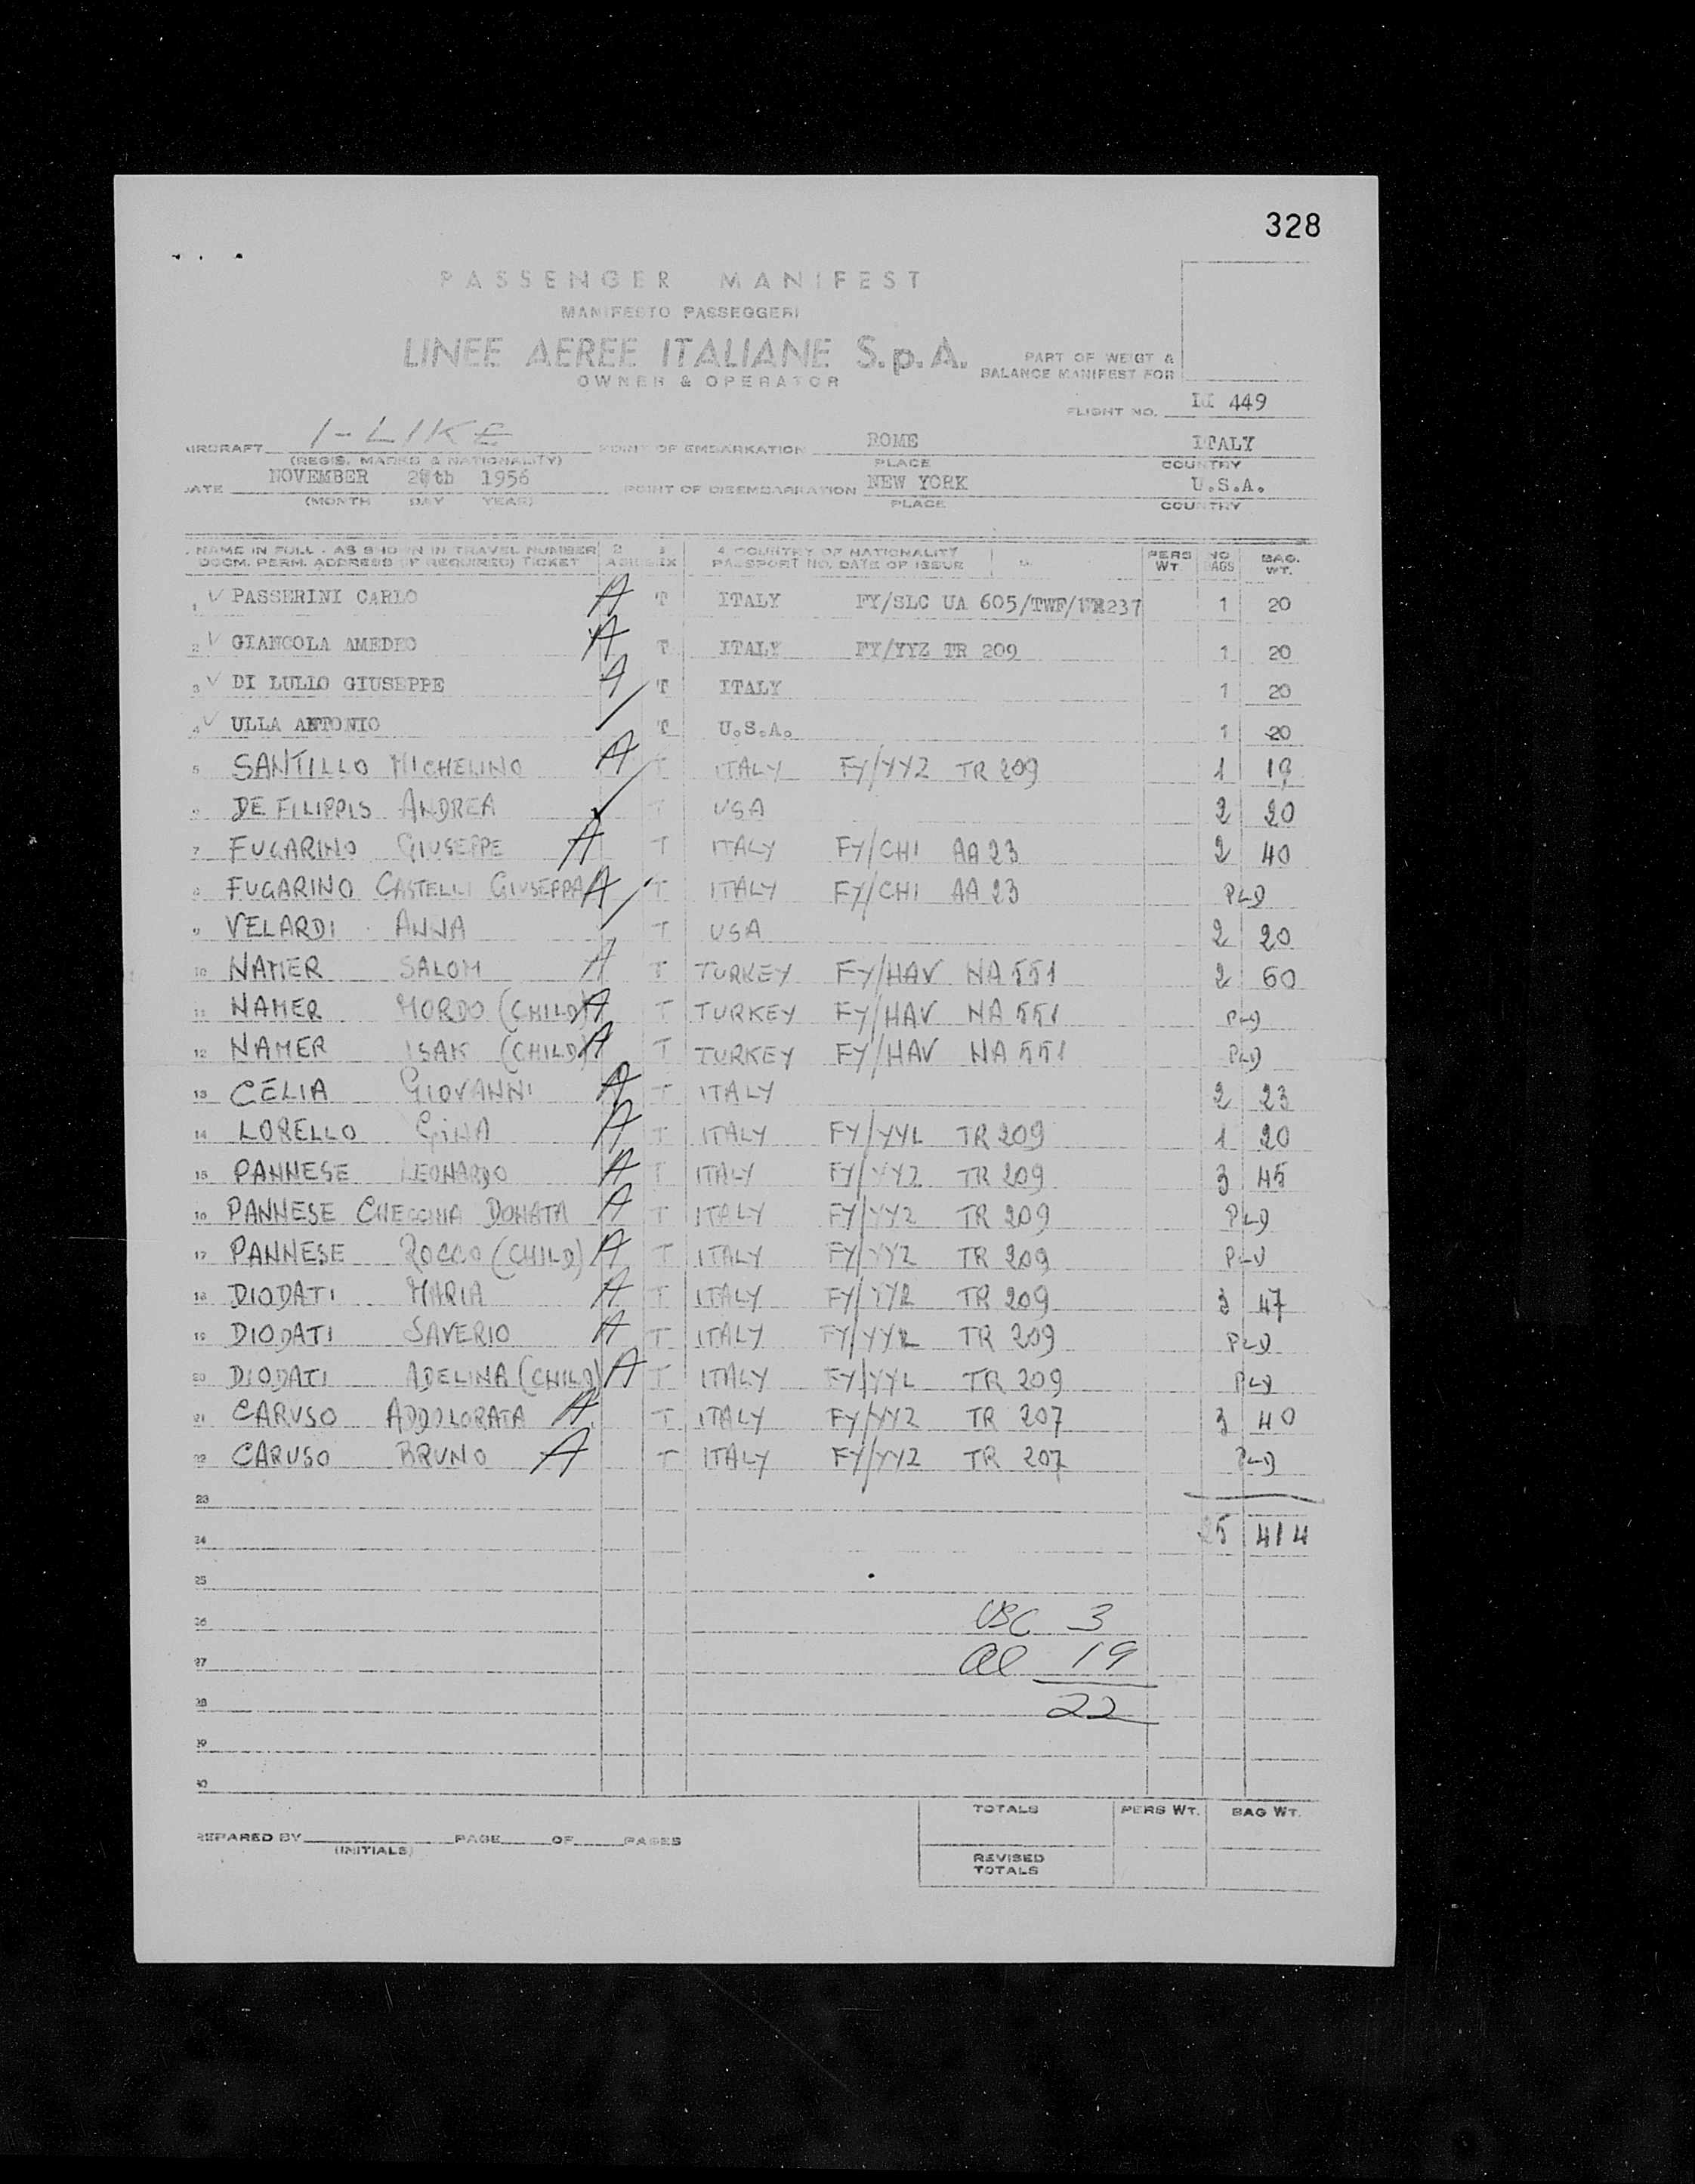 328
PASSENGER MANIFEST
MANIFESTO PASSEGGERI
LINEE AEREE ITALIANE S.p.A.
OWNER & OPERATOR
PART OF WEIGT &
BALANCE MANIFEST FOR
FLIGHT NO. LI 449
AIRCRAFT I-LIKE POINT OF EMBARKATION ROME ITALY
(REGIS. MARKS & NATIONALITY) PLACE COUNTRY
DATE NOVEMBER 28th 1956 POINT OF DISEMBARKATION NEW YORK U.S.A.
(MONTH DAY YEAR) PLACE COUNTRY
NAME IN FULL - AS SHOWN IN TRAVEL NUMBER 2 3 4 COUNTRY OF NATIONALITY PERS NO BAG.
DOCM. PERM. ADDRESS (IF REQUIRED) TICKET AGE SEX PASSPORT NO. DATE OF ISSUE WT. BAGS WT.
1 ✓ PASSERINI CARLO A T ITALY FY/SLC UA 605/TWF/WR237 1 20
2 ✓ GIANCOLA AMEDEO A T ITALY FY/YYZ TR 209 1 20
3 ✓ DI LULLO GIUSEPPE A T ITALY 1 20
4 ✓ ULLA ANTONIO ✓ T U.S.A. 1 20
5 SANTILLO MICHELINO A T ITALY FY/YYZ TR 209 1 19
6 DE FILIPPIS ANDREA ✓ T USA 2 20
7 FUGARINO GIUSEPPE A T ITALY FY/CHI AA 23 2 40
8 FUGARINO CASTELLI GIUSEPPA A T ITALY FY/CHI AA 23 PLD
9 VELARDI ANNA ✓ T USA 2 20
10 NAMER SALOM A T TURKEY FY/HAV NA 551 2 60
11 NAMER MORDO (CHILD) A T TURKEY FY/HAV NA 551 PLD
12 NAMER ISAK (CHILD) A T TURKEY FY/HAV NA 551 PLD
13 CELIA GIOVANNI A T ITALY 2 23
14 LORELLO GINA A T ITALY FY/YYZ TR 209 1 20
15 PANNESE LEONARDO A T ITALY FY/YYZ TR 209 3 45
16 PANNESE CHECCHIA DONATA A T ITALY FY/YYZ TR 209 PLD
17 PANNESE ROCCO (CHILD) A T ITALY FY/YYZ TR 209 PLD
18 DIODATI MARIA A T ITALY FY/YYZ TR 209 3 47
19 DIODATI SAVERIO A T ITALY FY/YYZ TR 209 PLD
20 DIODATI ADELINA (CHILD) A T ITALY FY/YYZ TR 209 PLD
21 CARUSO ADDOLORATA A T ITALY FY/YYZ TR 207 3 40
22 CARUSO BRUNO A T ITALY FY/YYZ TR 207 PLD
23
24 25 414
25
26 USC 3
27 al 19
28 22
29
30
TOTALS PERS WT. BAG WT.
PREPARED BY PAGE OF PAGES
(INITIALS)
REVISED
TOTALS